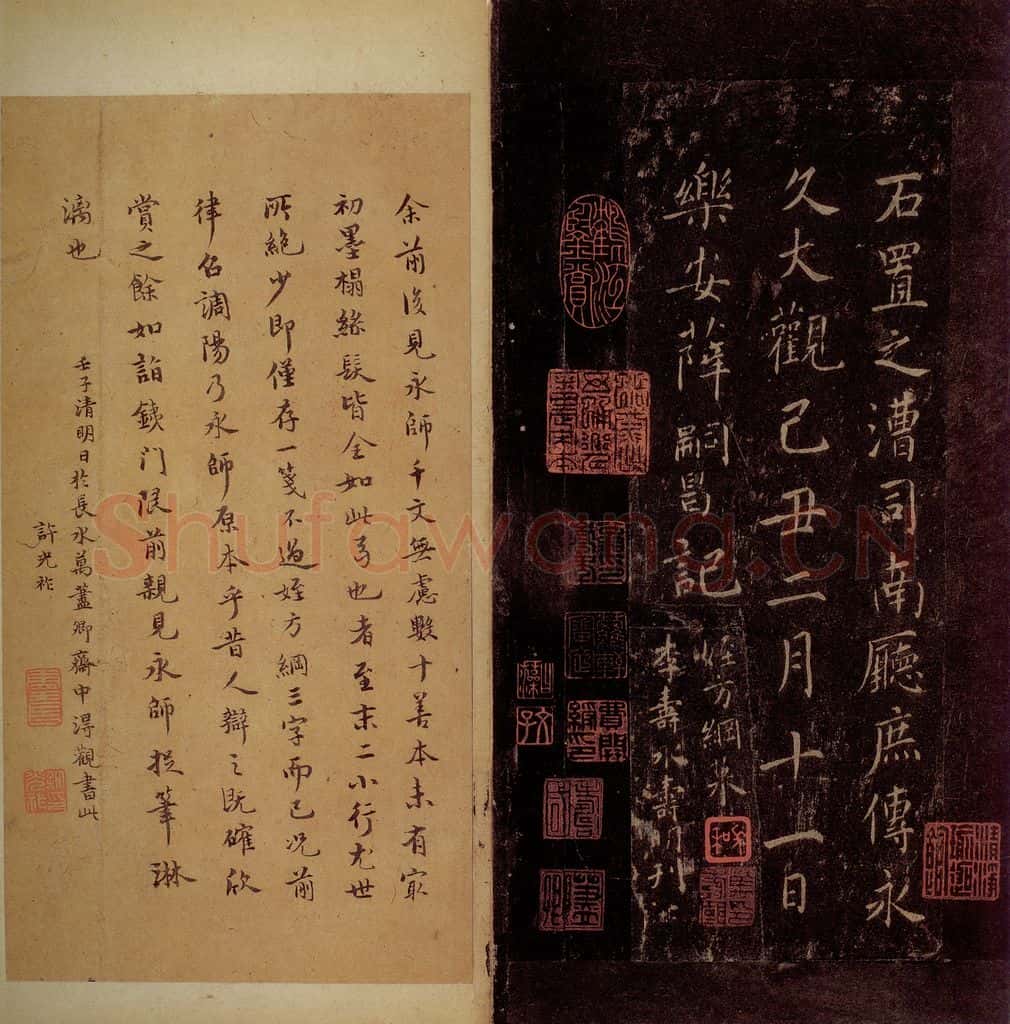 石置之漕司南廳庶傳永
久大觀己丑二月十一日
樂安薛嗣昌記
姪方綱
李壽永壽明刊
余前後見永師千文無慮數十善本未有最
初墨榻絲髮皆全如此者也者至末二小行尤世
所絕少即僅存一箋不過姪方綱三字而已況前
律呂調陽乃永師原本乎昔人辯之既確欣
賞之餘如詣鐵门限前親見永師捉筆淋
漓也
壬子清明日於長水萬藎卿齋中得觀書此
許光祚
Shufawang.CN